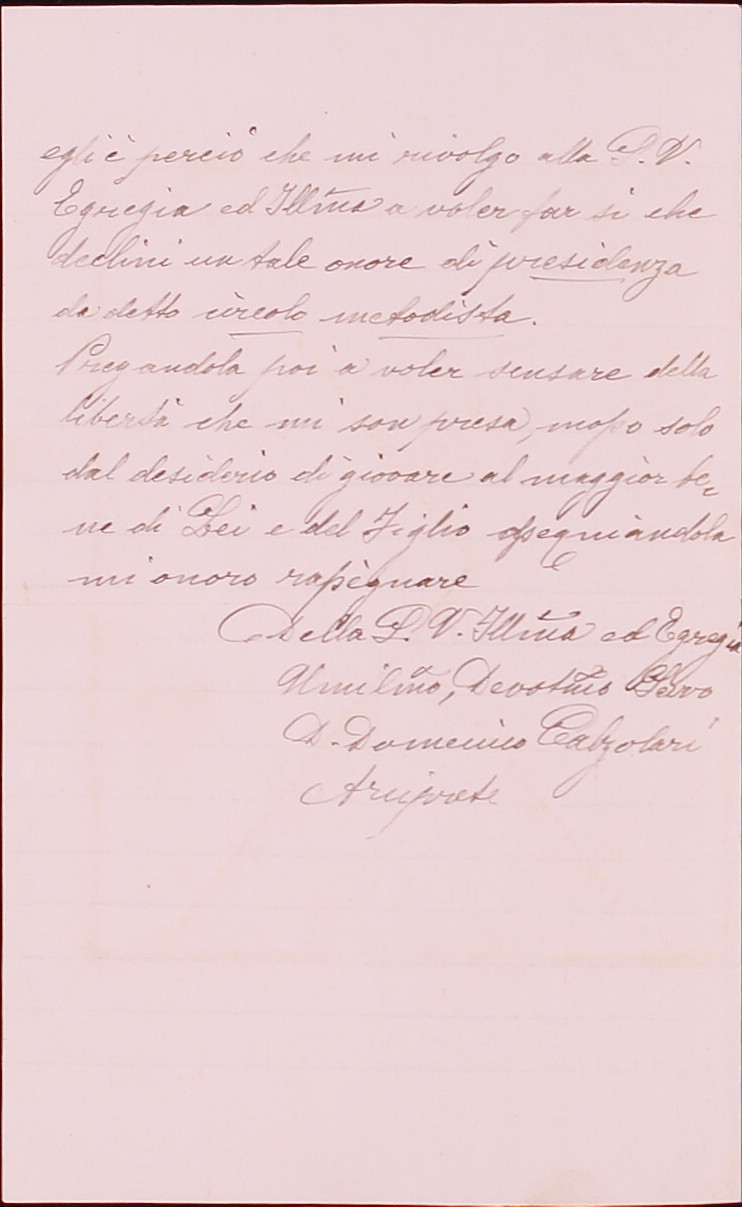 egli è perciò che mi rivolgo alla S. V.
Egregia ed Illma a voler far sì che
declini un tale onore di presidenza
da detto circolo metodista.
Pregandola poi a voler scusare della
libertà che mi son presa, mosso solo
dal desiderio di giovare al maggior be=
ne di Lei e del Figlio ossequiandola
mi onoro rassegnare
Della S. V. Illma ed Egregia
Umilmo, Devotmo Servo
D. Domenico Calzolari
Arciprete